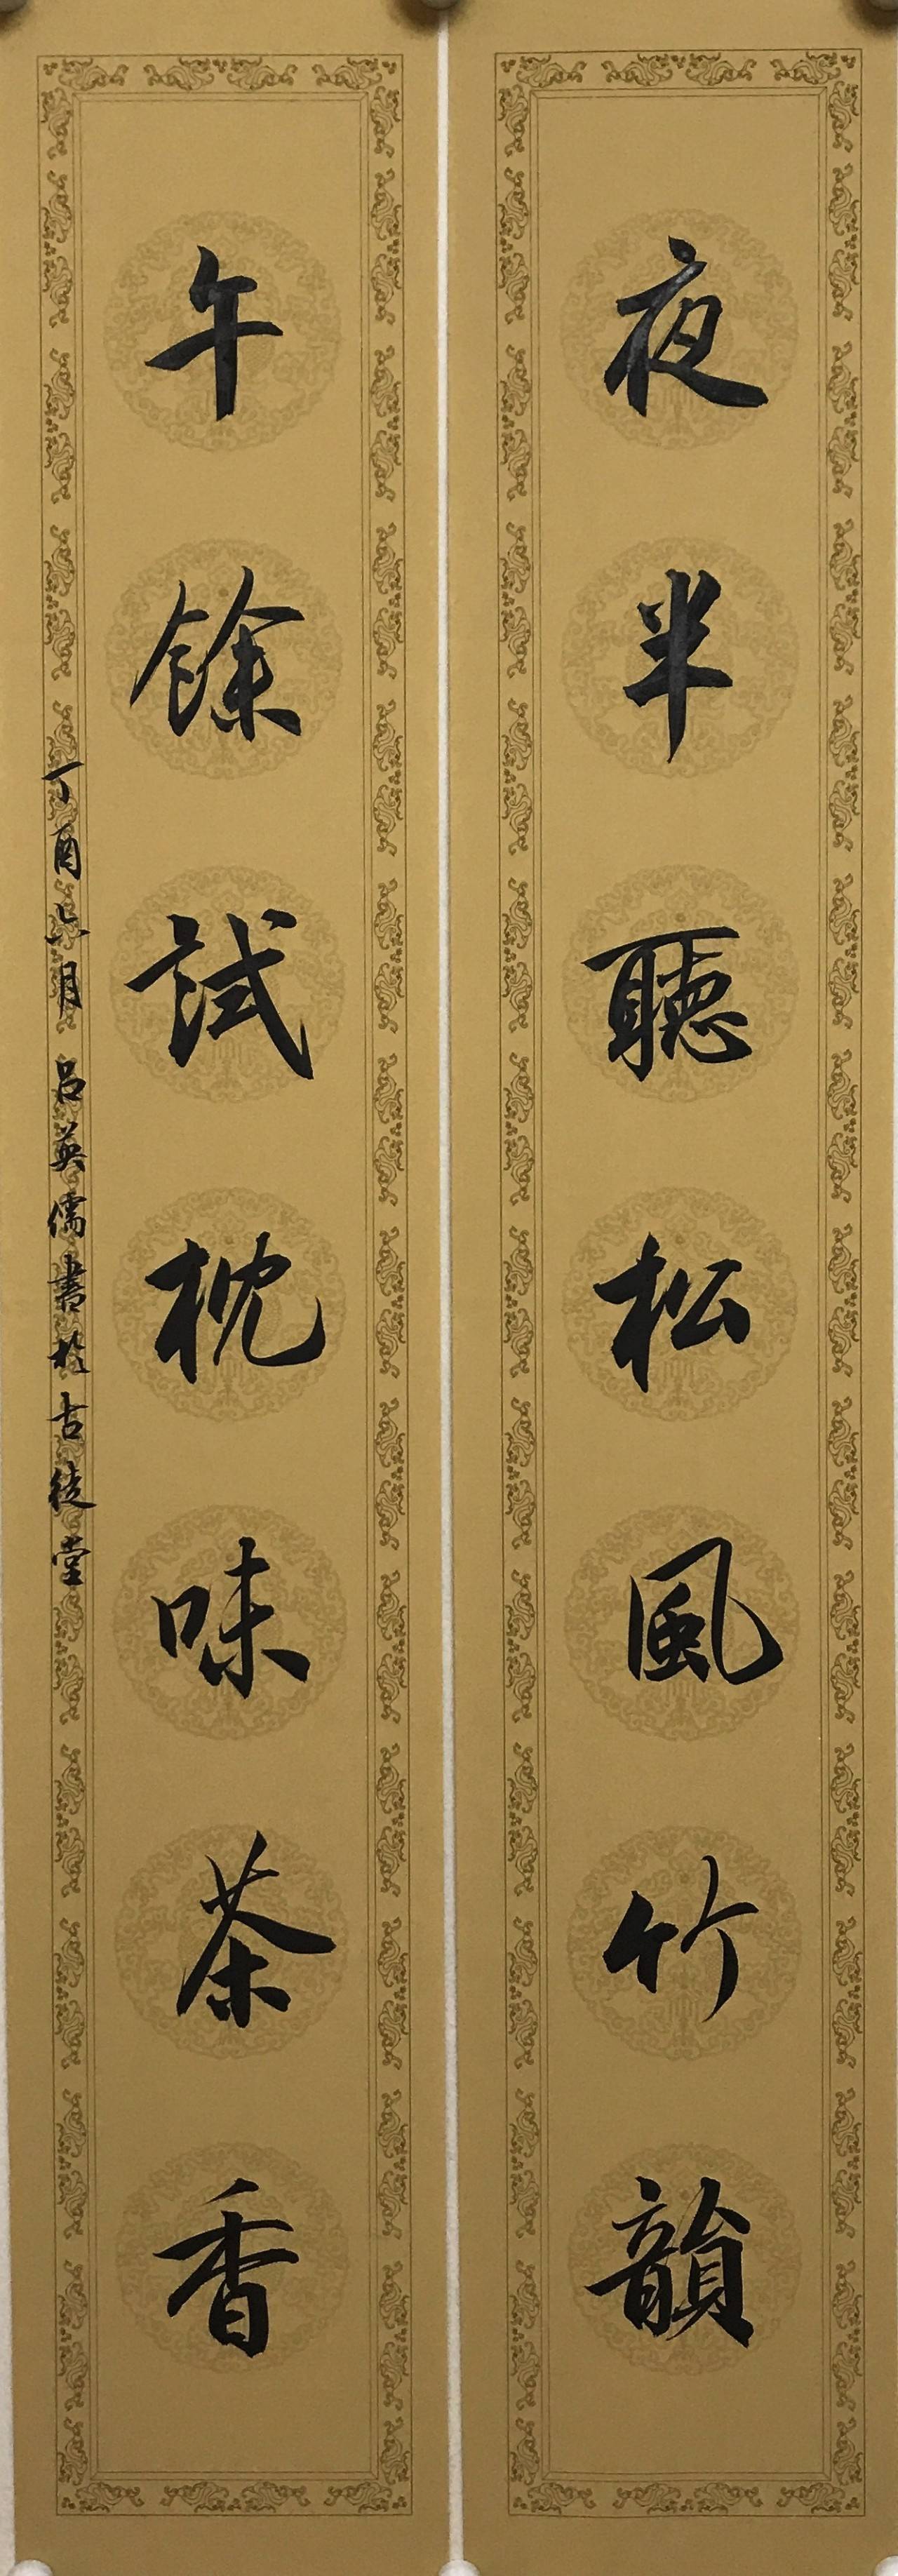 夜半聽松風竹韻
午餘試枕味茶香
丁酉六月呂英儒書於古徒堂